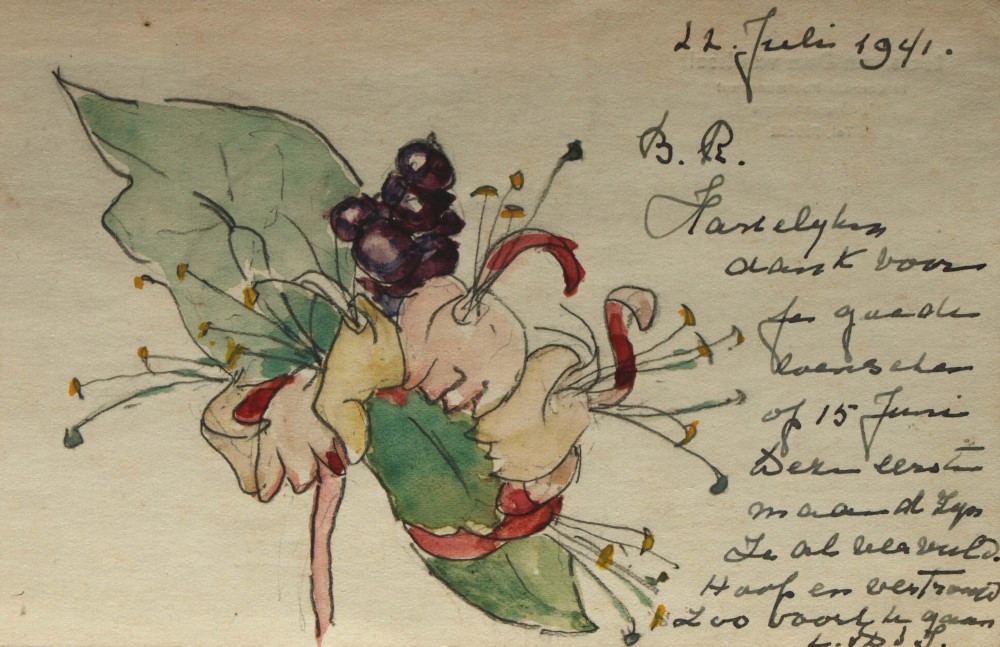 22. Juli 1941.
B. R.
Hartelyken
dank voor
je goede
wenschen
op 15 Juni
Deze eerste
maand zyn
Ze al vervuld.
Hoop en vertrouw
Zoo voort te gaan